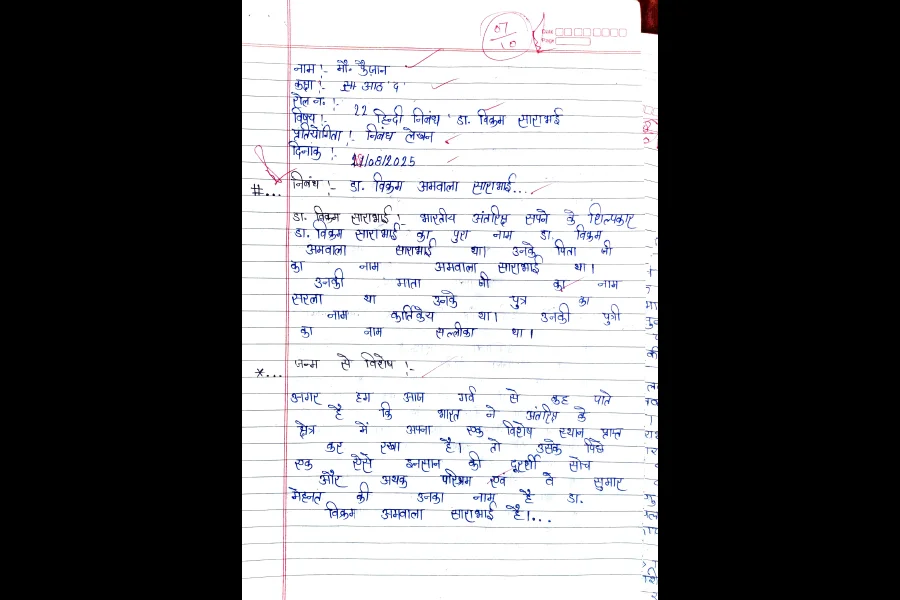 07/10
DATE
PAGE
नाम !- मौ. कैज़ान
कक्षा !- सा आठ 'द'
रोल न. !- 22
विषय !- हिन्दी निबंध ' डा. विक्रम साराभाई
प्रतियोगिता !- निबंध लेखन
दिनाकं !- 11/08/2025
#... निबंध !- डा. विक्रम अमवाला साराभाई....
डा. विक्रम साराभाई !- भारतीय अंतरिक्ष सपने के शिल्पकार
डा. विक्रम साराभाई का पुरा नाम डा. विक्रम
अमवाला साराभाई था। उनके पिता जी
का नाम अमवाला साराभाई था।
उनकी माता जी का नाम
सरला था उनके पुत्र का
नाम कर्तिकेय था। उनकी पुत्री
का नाम सल्लीका था।
*... जन्म से विशेष !-
अगर हम आज गर्व से कह पाते
है कि भारत ने अंतरिक्ष के
क्षेत्र में अपना एक विशेष स्थान प्राप्त
कर रखा है। तो उसके पिछे
एक ऐसे इनसान की दूरर्शी सोच
और अथक परिश्रम एवं वे सुमार
मेहनत की उनका नाम है डा.
विक्रम अमवाला साराभाई है।...